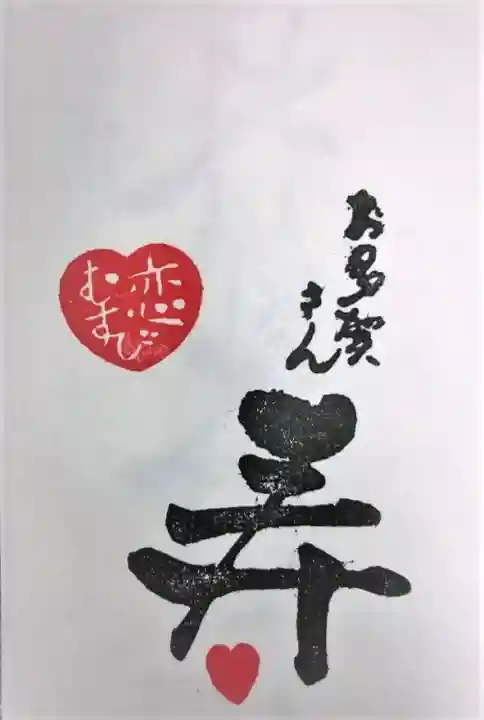 お多賀
さん
恋
むすび